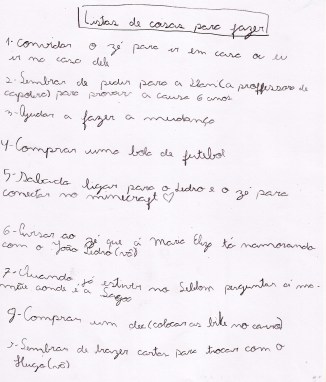 Listas de cosas para fazer
1- convidar o zé para ir em casa ou eu
ir na casa dele
2- Lembrar de pedir para a (a proffessora de
capoeira) para provar a causa 6 anos
3- Ajudar a fazer a mudança
4- Comprar uma bola de futebol
5- Sabado ligar para o Pedro e o zé para
conectar no minecraft ♡
6- Avisar ao zé que a Maria Eliza tá namorando
com o João Pedro (vô)
7- Quando já estiver no perguntar a ma-
mãe aonde é a
8- Comprar um (colocar as bike no carro)
9- Lembrar de trazer cartas para trocar com o
Hugo (vô)